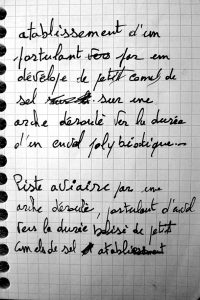 atablissement d'un
postulant vers par em
dévelope de petit camels de
sel sur une
arche déroulé vers la durée
d'un enviol polybiotique...
Piste aviaire par une
arche déroulé, postulant d'avil
vers la durée balisé de petit
camels de sel atablissement